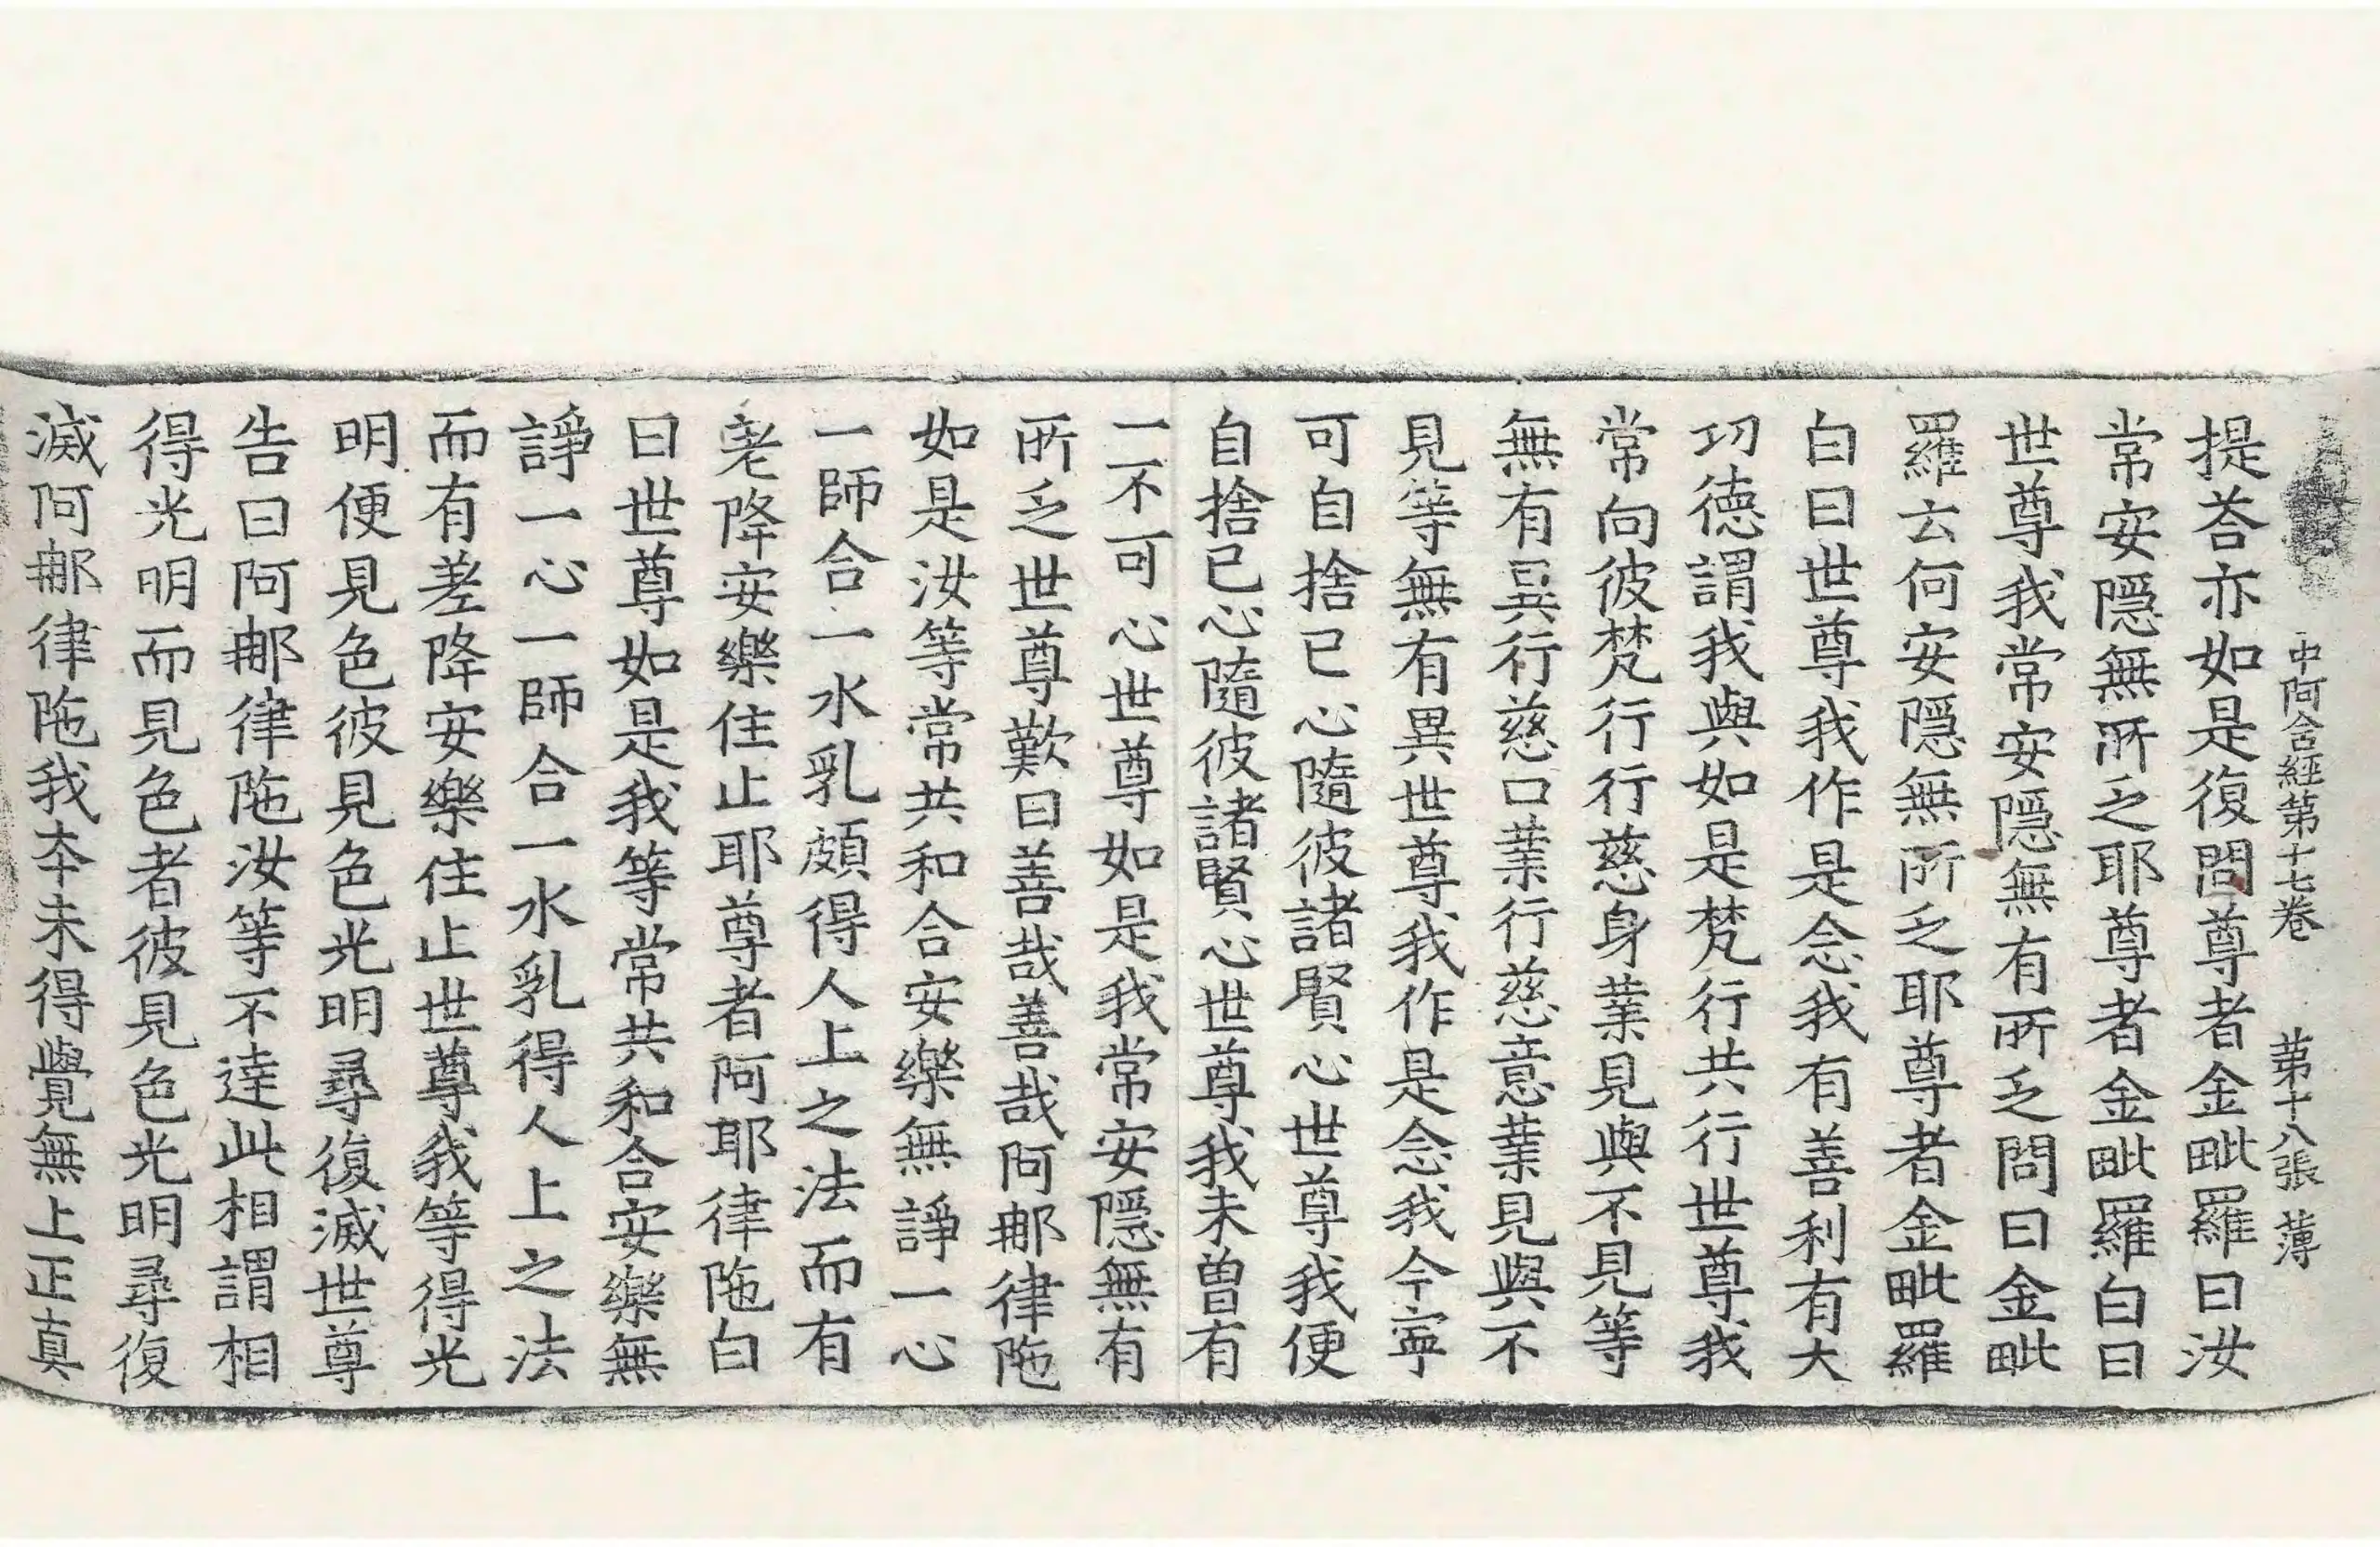 中阿含經第十七卷　第十八張　薄
提荅亦如是復問尊者金毗羅曰汝
常安隱無所乏耶尊者金毗羅白曰
世尊我常安隱無有所乏問曰金毗
羅云何安隱無所乏耶尊者金毗羅
白曰世尊我作是念我有善利有大
功德謂我與如是梵行共行世尊我
常向彼梵行行慈身業見與不見等
無有異行慈口業行慈意業見與不
見等無有異世尊我作是念我今寧
可自捨已心隨彼諸賢心世尊我便
自捨已心隨彼諸賢心世尊我未曾有
一不可心世尊如是我常安隱無有
所乏世尊歎曰善哉善哉阿那律陁
如是汝等常共和合安樂無諍一心
一師合一水乳頗得人上之法而有
差降安樂住止耶尊者阿那律陁白
曰世尊如是我等常共和合安樂無
諍一心一師合一水乳得人上之法
而有差降安樂住止世尊我等得光
明便見色彼見色光明尋復滅世尊
告曰阿那律陁汝等不達此相謂相
得光明而見色者彼見色光明尋復
滅阿那律陁我本未得覺無上正真